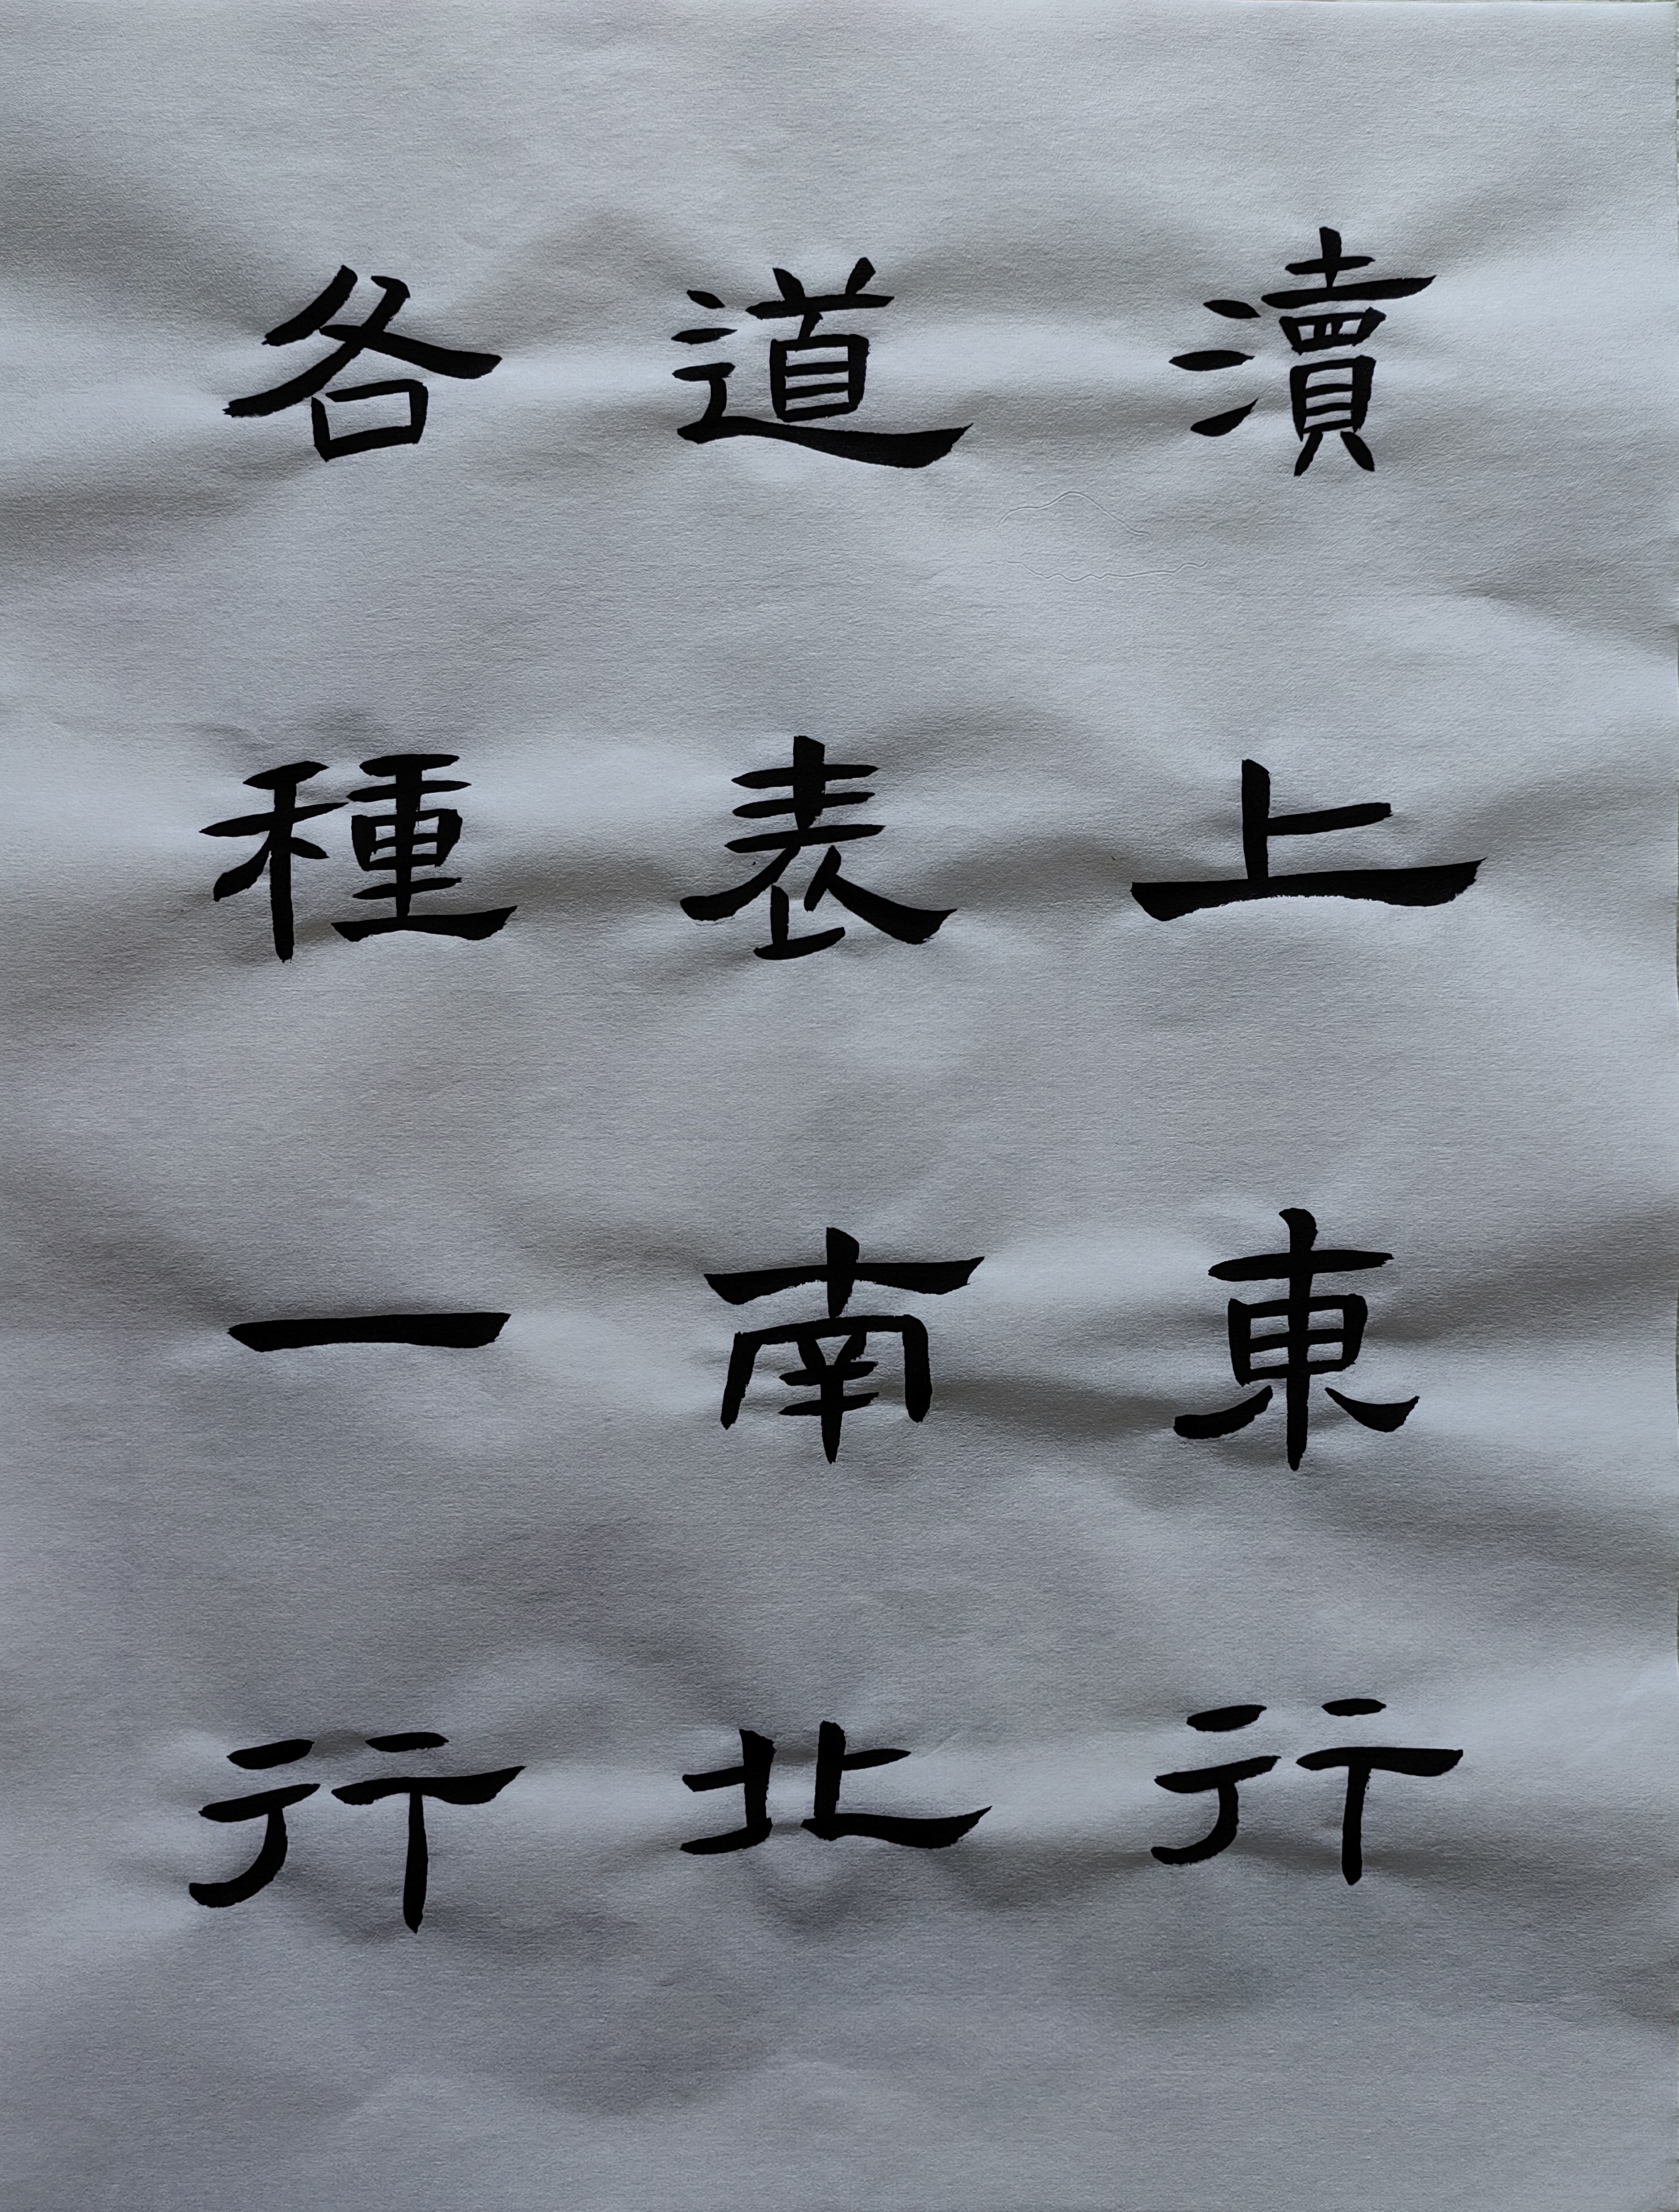 瀆上東行
道表南北
各種一行